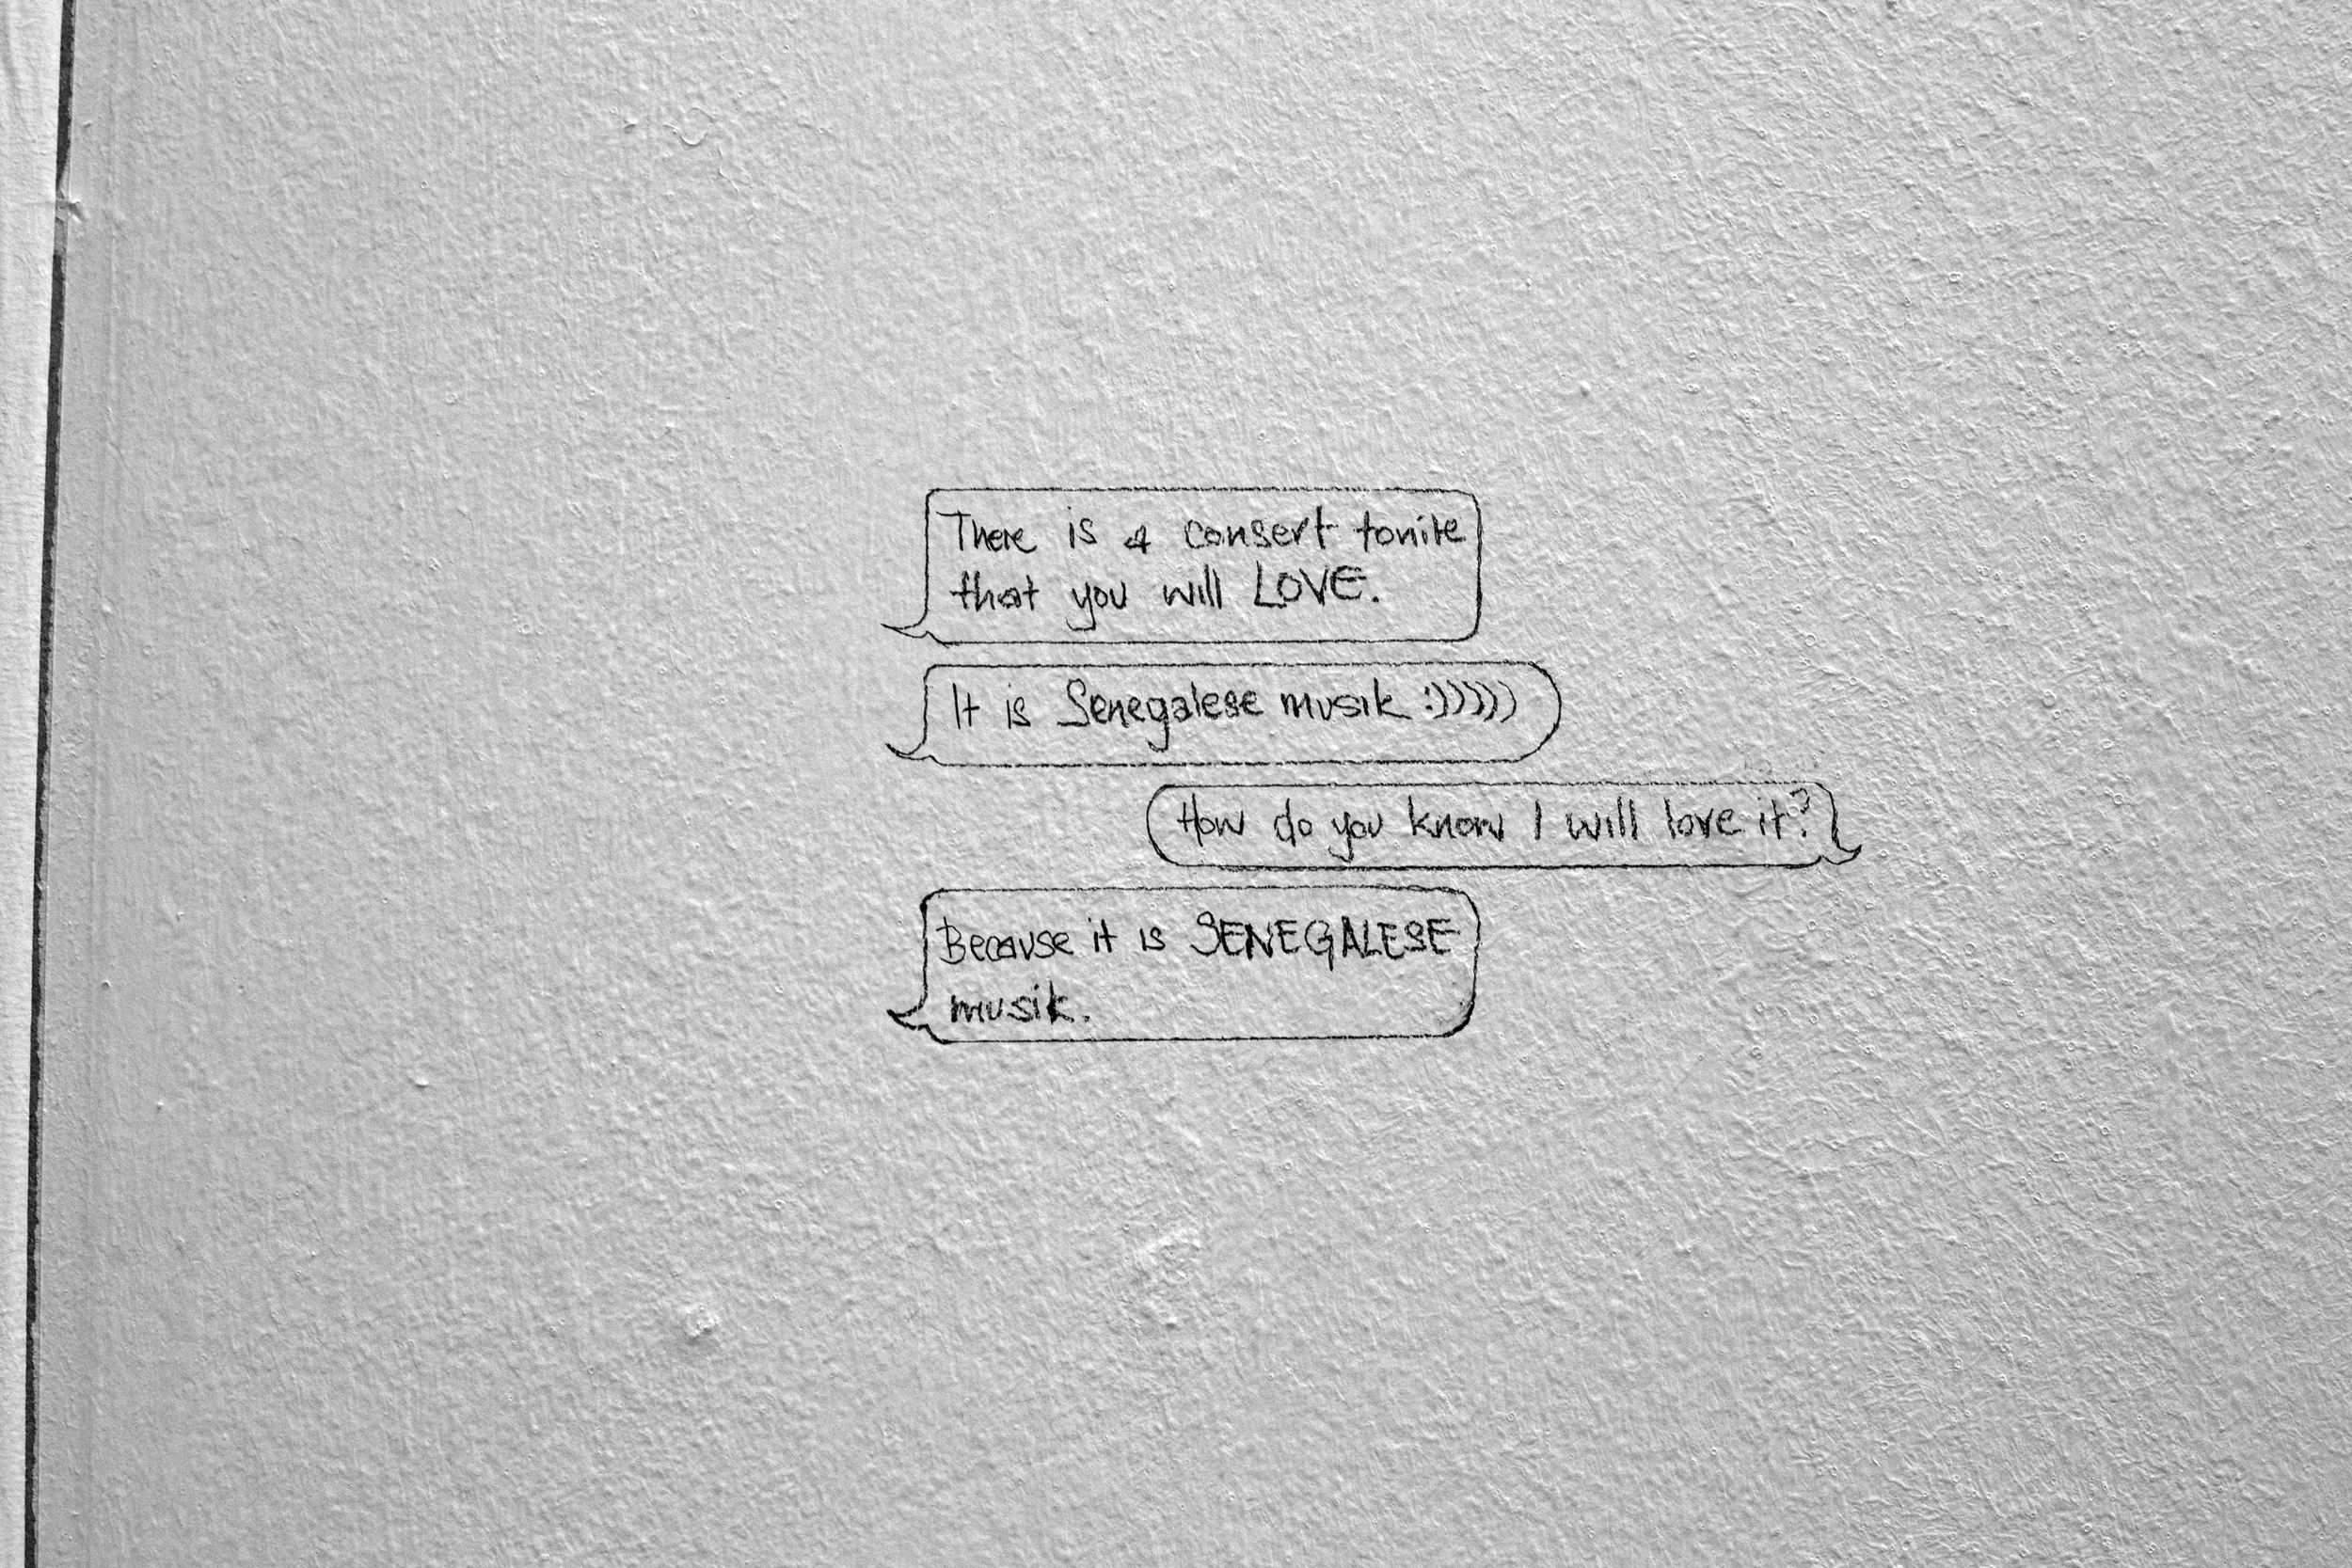 There is a consert tonite
that you will LOVE.
It is Senegalese musik :)))))
How do you know I will love it?
Because it is SENEGALESE
musik.